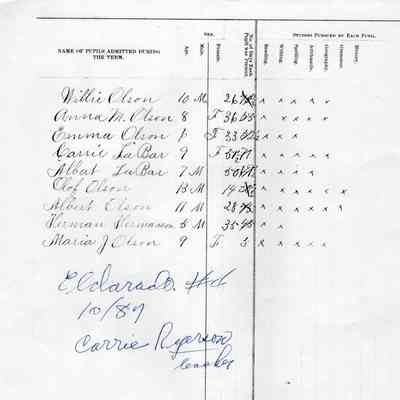 Sex.
Studies Pursued by Each Pupil.
NAME OF PUPILS ADMITTED DURING THE TERM.
Age.
Male.
Female.
No. of Days Each Pupil was Present.
Reading.
Writing.
Spelling.
Arithmetic.
Geography.
Grammar.
History.
Willie Olson 10 M 26 x x x x v
Anna M. Olson 8 F 36 x x x x
Emma Olson F 33 x x x
Carrie LaBar 9 F x x x x x
Albat LaBar 7 M x x x x
Olof Olson 13 M 14 x x x x x x
Albert Elson 11 M 28 x x x x x x
Herman Hermanson 5 M 35 x x
Maria J Olson 9 F 3 x x x x x
Eldorado
10/89
Carrie Ryerson